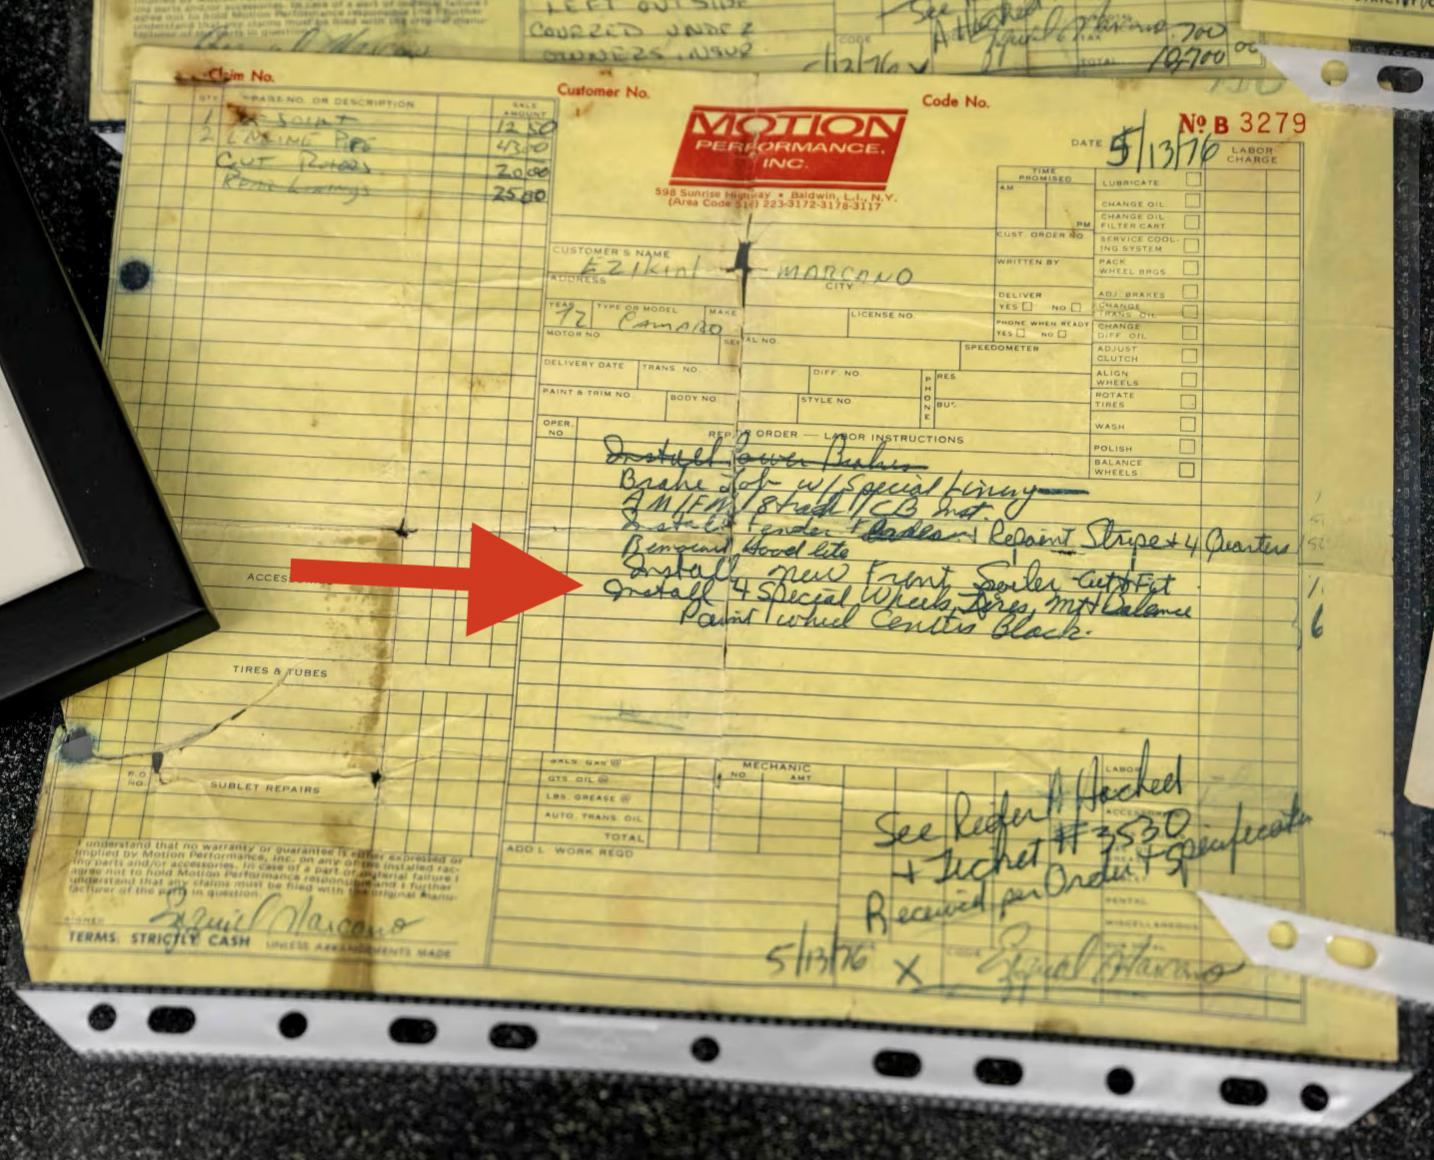 LEFT OUTSIDE
COVERED UNDER
OWNERS INSUR
See
CODE
TAX
700
TOTAL
10,700 00
5/12/76
Claim No.
Customer No.
Code No.
No B 3279
QTY.
PART NO. OR DESCRIPTION
SALE AMOUNT
1
12 50
2 ENGINE
43 00
Cut Rotors
20 00
Linings
25 00
MOTION
PERFORMANCE,
INC.
598 Sunrise Highway • Baldwin, L.I., N.Y.
(Area Code 516) 223-3172-3178-3117
DATE 5/13/76
LABOR CHARGE
TIME PROMISED
AM
PM
CUST. ORDER NO.
WRITTEN BY
DELIVER
YES NO
PHONE WHEN READY
YES NO
LUBRICATE
CHANGE OIL
CHANGE OIL FILTER CART
SERVICE COOLING SYSTEM
PACK WHEEL BRGS
ADJ. BRAKES
CHANGE TRANS. OIL
CHANGE DIFF. OIL
ADJUST CLUTCH
ALIGN WHEELS
ROTATE TIRES
WASH
POLISH
BALANCE WHEELS
CUSTOMER'S NAME
EZIKial MARCANO
ADDRESS
CITY
YEAR
TYPE OR MODEL
MAKE
LICENSE NO.
72 CAMARO
MOTOR NO
SERIAL NO.
SPEEDOMETER
DELIVERY DATE
TRANS. NO.
DIFF. NO.
PHONE
RES
BUS.
PAINT & TRIM NO.
BODY NO
STYLE NO
OPER. NO
REPAIR ORDER — LABOR INSTRUCTIONS
Install Power Brakes
Brake Job w/ Special Lining
AM/FM/8 track/CB Inst.
Install Fender + Repaint Stripe + 4 Quarters
Hood lite
Install new Front Spoiler Cut & Fit
Install 4 Special Wheels, Tires, Mt + balance
Paint wheel Centers Black.
6
TIRES & TUBES
P.O. NO.
SUBLET REPAIRS
GALS. GAS @
QTS. OIL @
LBS. GREASE @
AUTO. TRANS. OIL
TOTAL
MECHANIC
NO.
AMT
ADD'L WORK REQD
LABOR
See Attached
+ Ticket #3530
Received per Order +
I understand that no warranty or guarantee is either expressed or
implied by Motion Performance, Inc. on any of the installed rac-
ing parts and/or accessories. In case of a part or material failure I
agree not to hold Motion Performance responsible and I further
understand that any claims must be filed with the original manu-
facturer of the parts in question.
SIGNED
Ezequiel Marcano
TERMS: STRICTLY CASH UNLESS ARRANGEMENTS MADE
RENTAL
MISCELLANEOUS
CODE
5/13/76 X Ezequiel Marcano